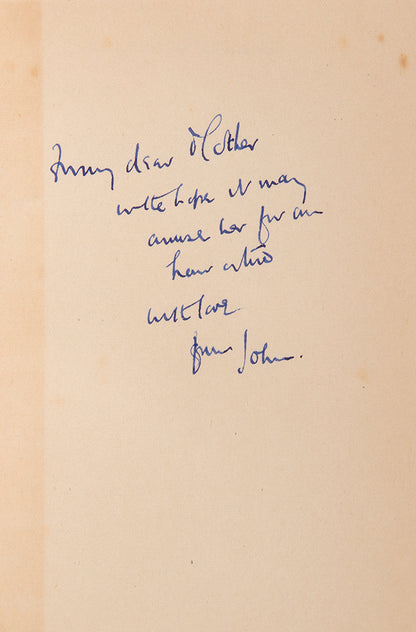 For my dear Mother
in the hope it may
amuse her for an
hour or two
with love
from John.